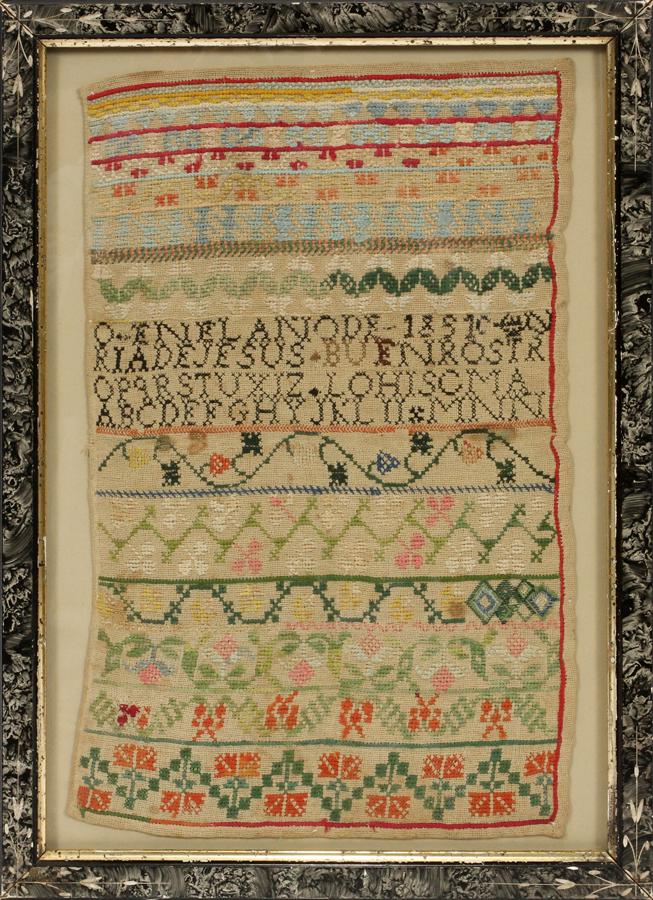 O EN EL ANIODE 1851
RIADEJESUS BUENROSTR
OPQRSTUXIZ LOHISOMA
ABCDEFGHYJKLLLMNN